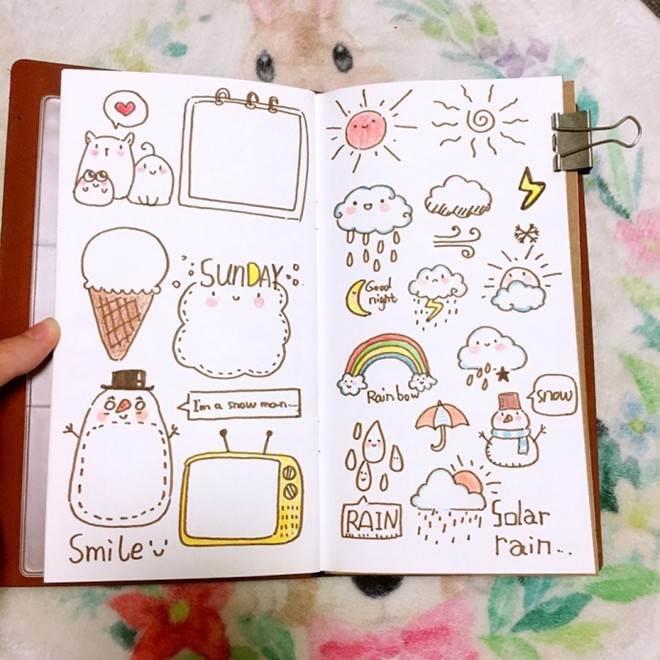 SUNDAY
I'm a snow man...
Smile
Good
night
Rainbow
snow
RAIN
Solar
rain...